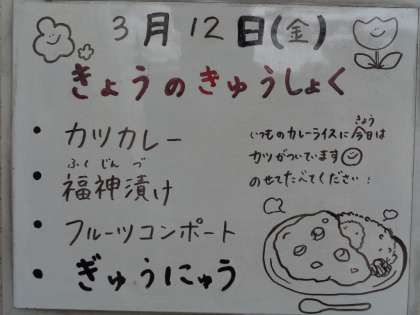 3月12日(金)
きょうのきゅうしょく
・カツカレー
ふくじんづ
・福神漬け
・フルーツコンポート
・ぎゅうにゅう
きょう
いつものカレーライスに今日は
カツがついています
のせてたべてください!